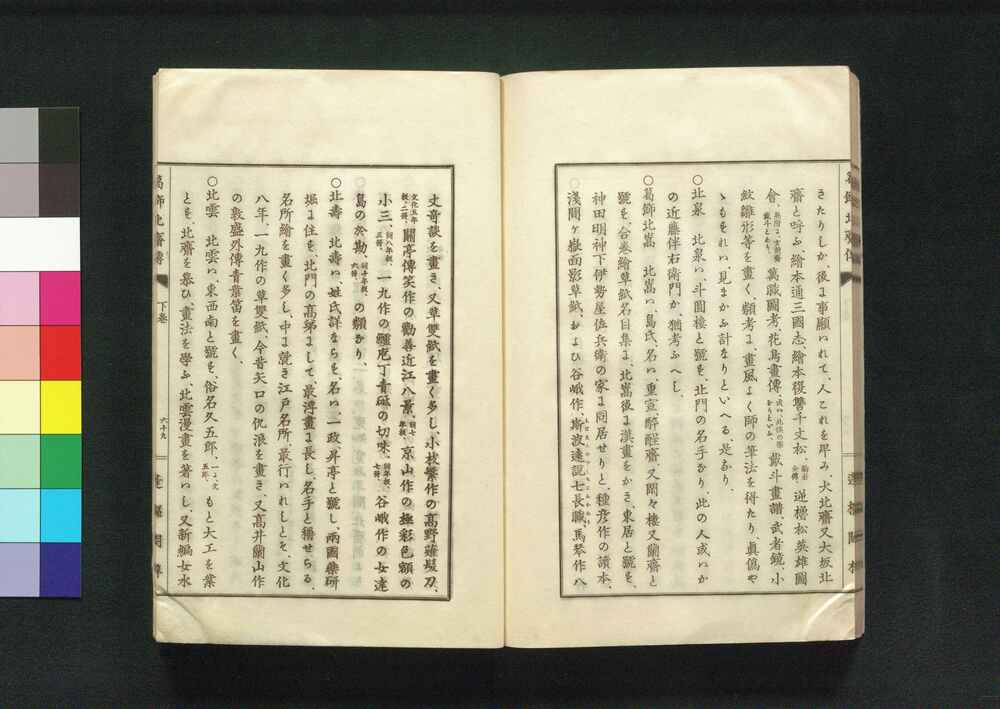 きたりしか、後ま事顯いれて、人これを卑み、犬北齋又大坂北
齋と呼ふ、繪本通三國志、繪本復讐千丈松、逆櫓松英雄圖
會、萬職圖考、花鳥畫傳、戴斗畫譜、武者鏡、小
紋雛形等を畫く、類考ま、畫風よく師の筆法を得たり、眞僞や
ゝもそれい、見まかふ計なりといへる、是なり、
○北泉 北泉い、斗圓樓と號を、北門の名手なり、此の人或いか
の近藤伴右衛門か、猶考ふへし、
○葛飾北嵩 北嵩い、島氏、名い、重宣、醉醒齋、又閑々樓又蘭齋と
號を、合卷繪草紙名目集ま、北嵩後ま漢畫をかき、東居と號を、
神田明神下伊勢屋佐兵衛の家ま同居せりと、種彦作の讀本、
淺間ヶ嶽面影草紙、および谷峨作、斯波遠説七長臓、馬琴作八
丈奇談を畫き、又草雙紙を畫く多し、小枝繁作の高野薙髮刀、
文化五年板、二冊、關亭傳笑作の勸善近江八景、同七年板、京山作の極彩色額の
小三、同八年板、三冊、一九作の驪庖丁青砥の切味、同年板、七冊、谷峨作の女達
島の於勘、同十年板、六冊、の類なり、
○北壽 北壽い、姓氏詳ならを、名い、一政、昇亭と號し、兩國藥研
堀ま住を、北門の高弟まして、最浮畫ま長し、名手と稱せらる、
名所繪を畫く多し、中ま就き江戸名所、最行いれしとそ、文化
八年、一九作の草雙紙、今昔矢口の仇浪を畫き、又高井蘭山作
の敦盛外傳青葉笛を畫く、
○北雲 北雲い、東西南と號を、俗名久五郎、もと大工を業
とを、北齋を慕ひ、畫法を學ふ、北雲漫畫を著いし、又新編女水
葛飾北齋傳
下卷
六十九